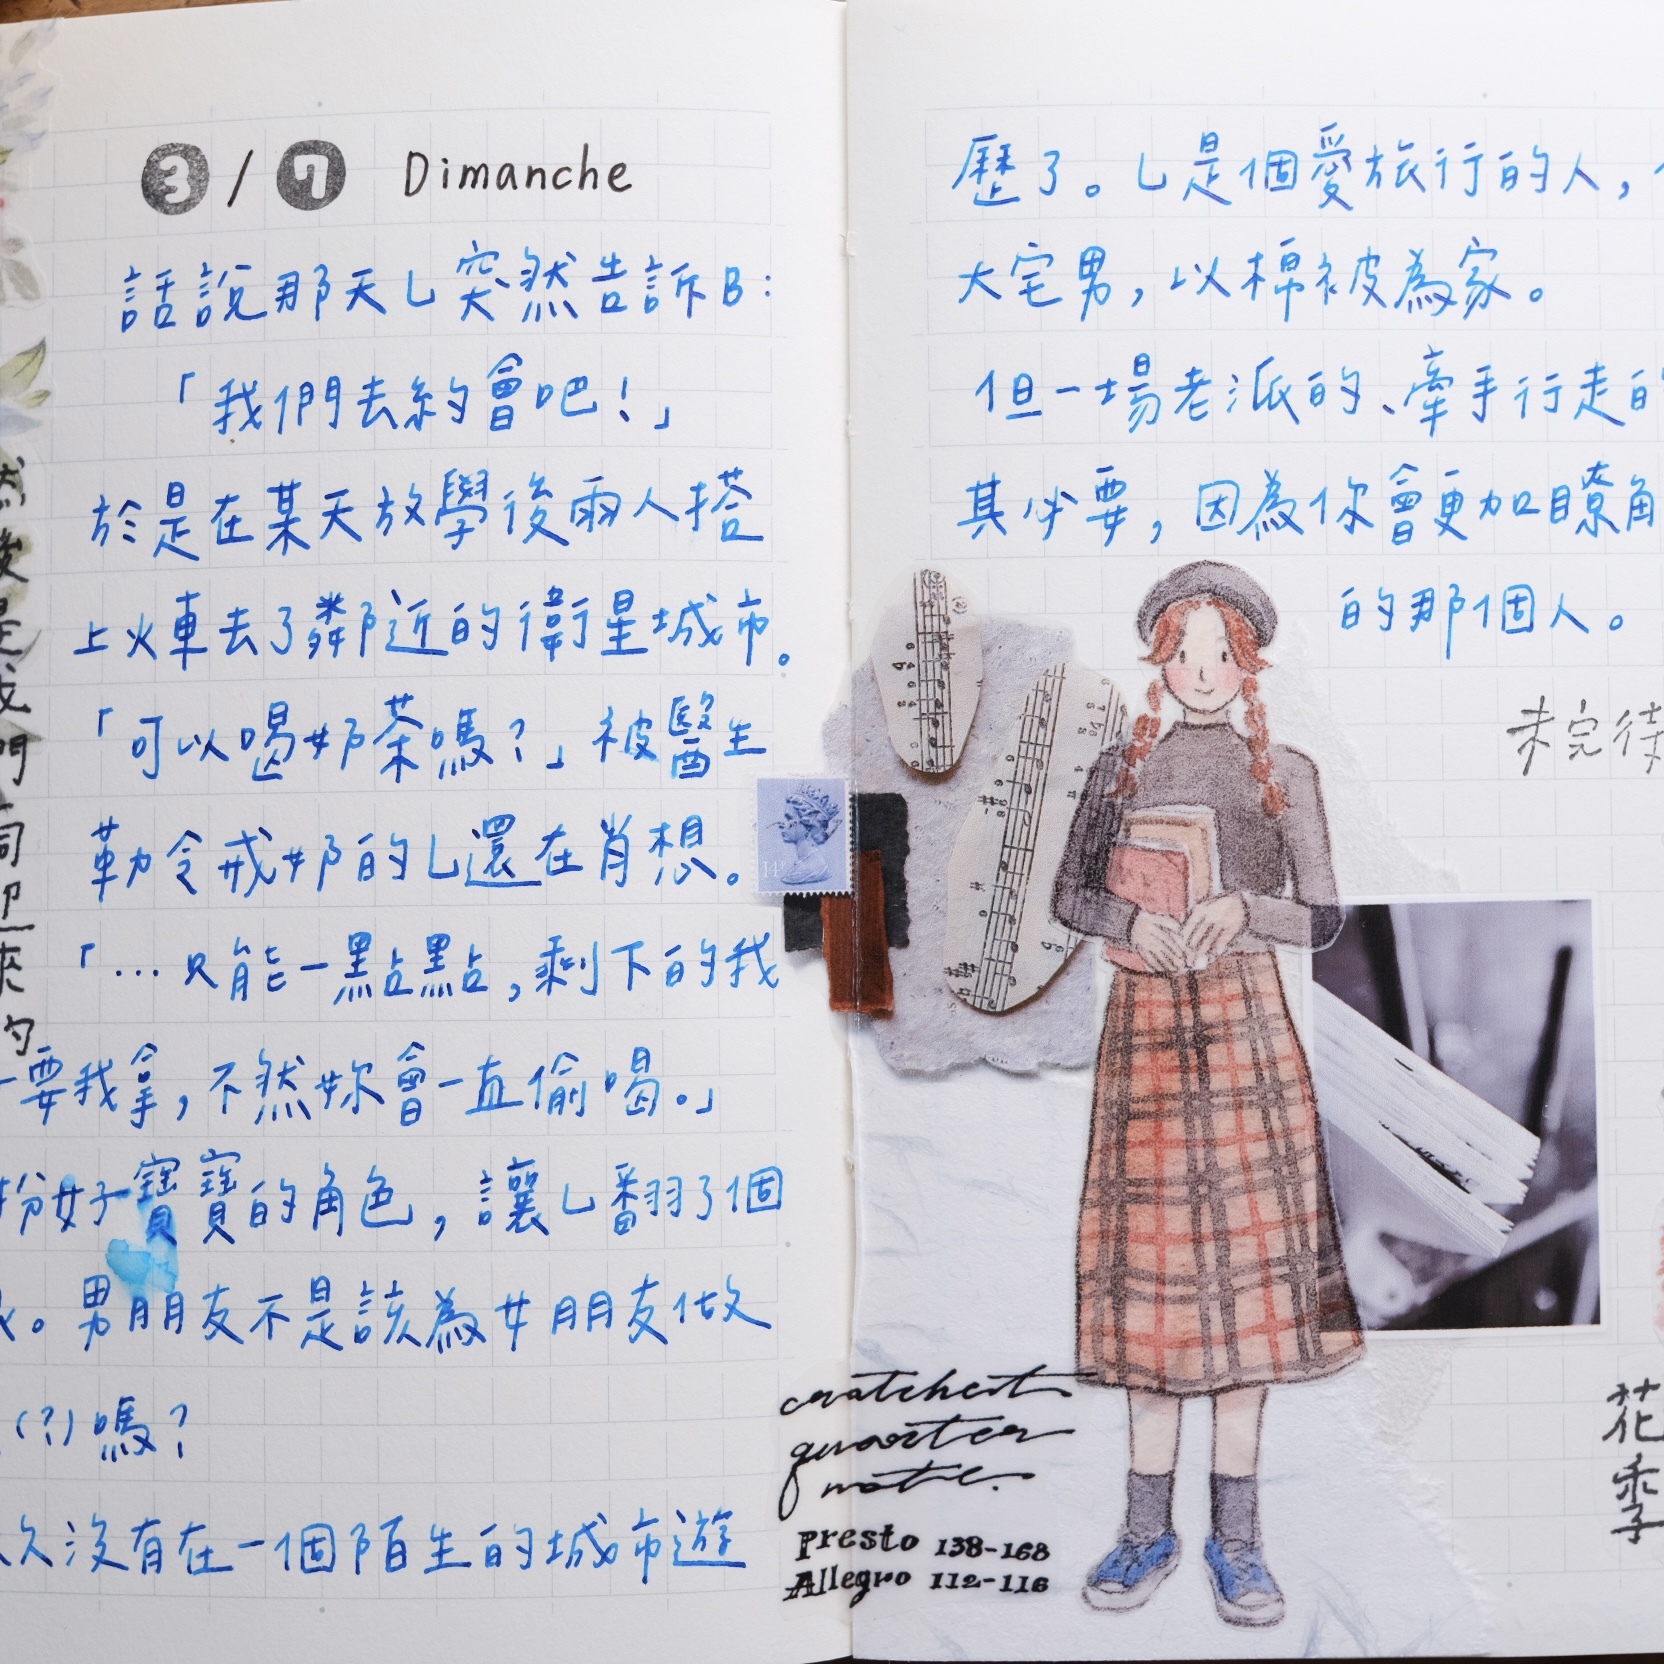 3/7 Dimanche
話說那天L突然告訴B:
「我們去約會吧！」
於是在某天放學後兩人搭
上火車去了鄰近的衛星城市。
「可以喝奶茶嗎？」被醫生
勒令戒奶的L還在肖想。
「…只能一點點,剩下的我
要我拿,不然妳會一直偷喝。」
扮好寶寶的角色,讓L翻了個
。男朋友不是該為女朋友做
(?)嗎？
久沒有在一個陌生的城市遊
14
cratchert
quarter
note.
Presto 138-168
Allegro 112-116
歷了。L是個愛旅行的人,
大宅男,以棉被為家。
但一場老派的、牽手行走的
其必要,因為你會更加瞭解
的那個人。
未完待
花季